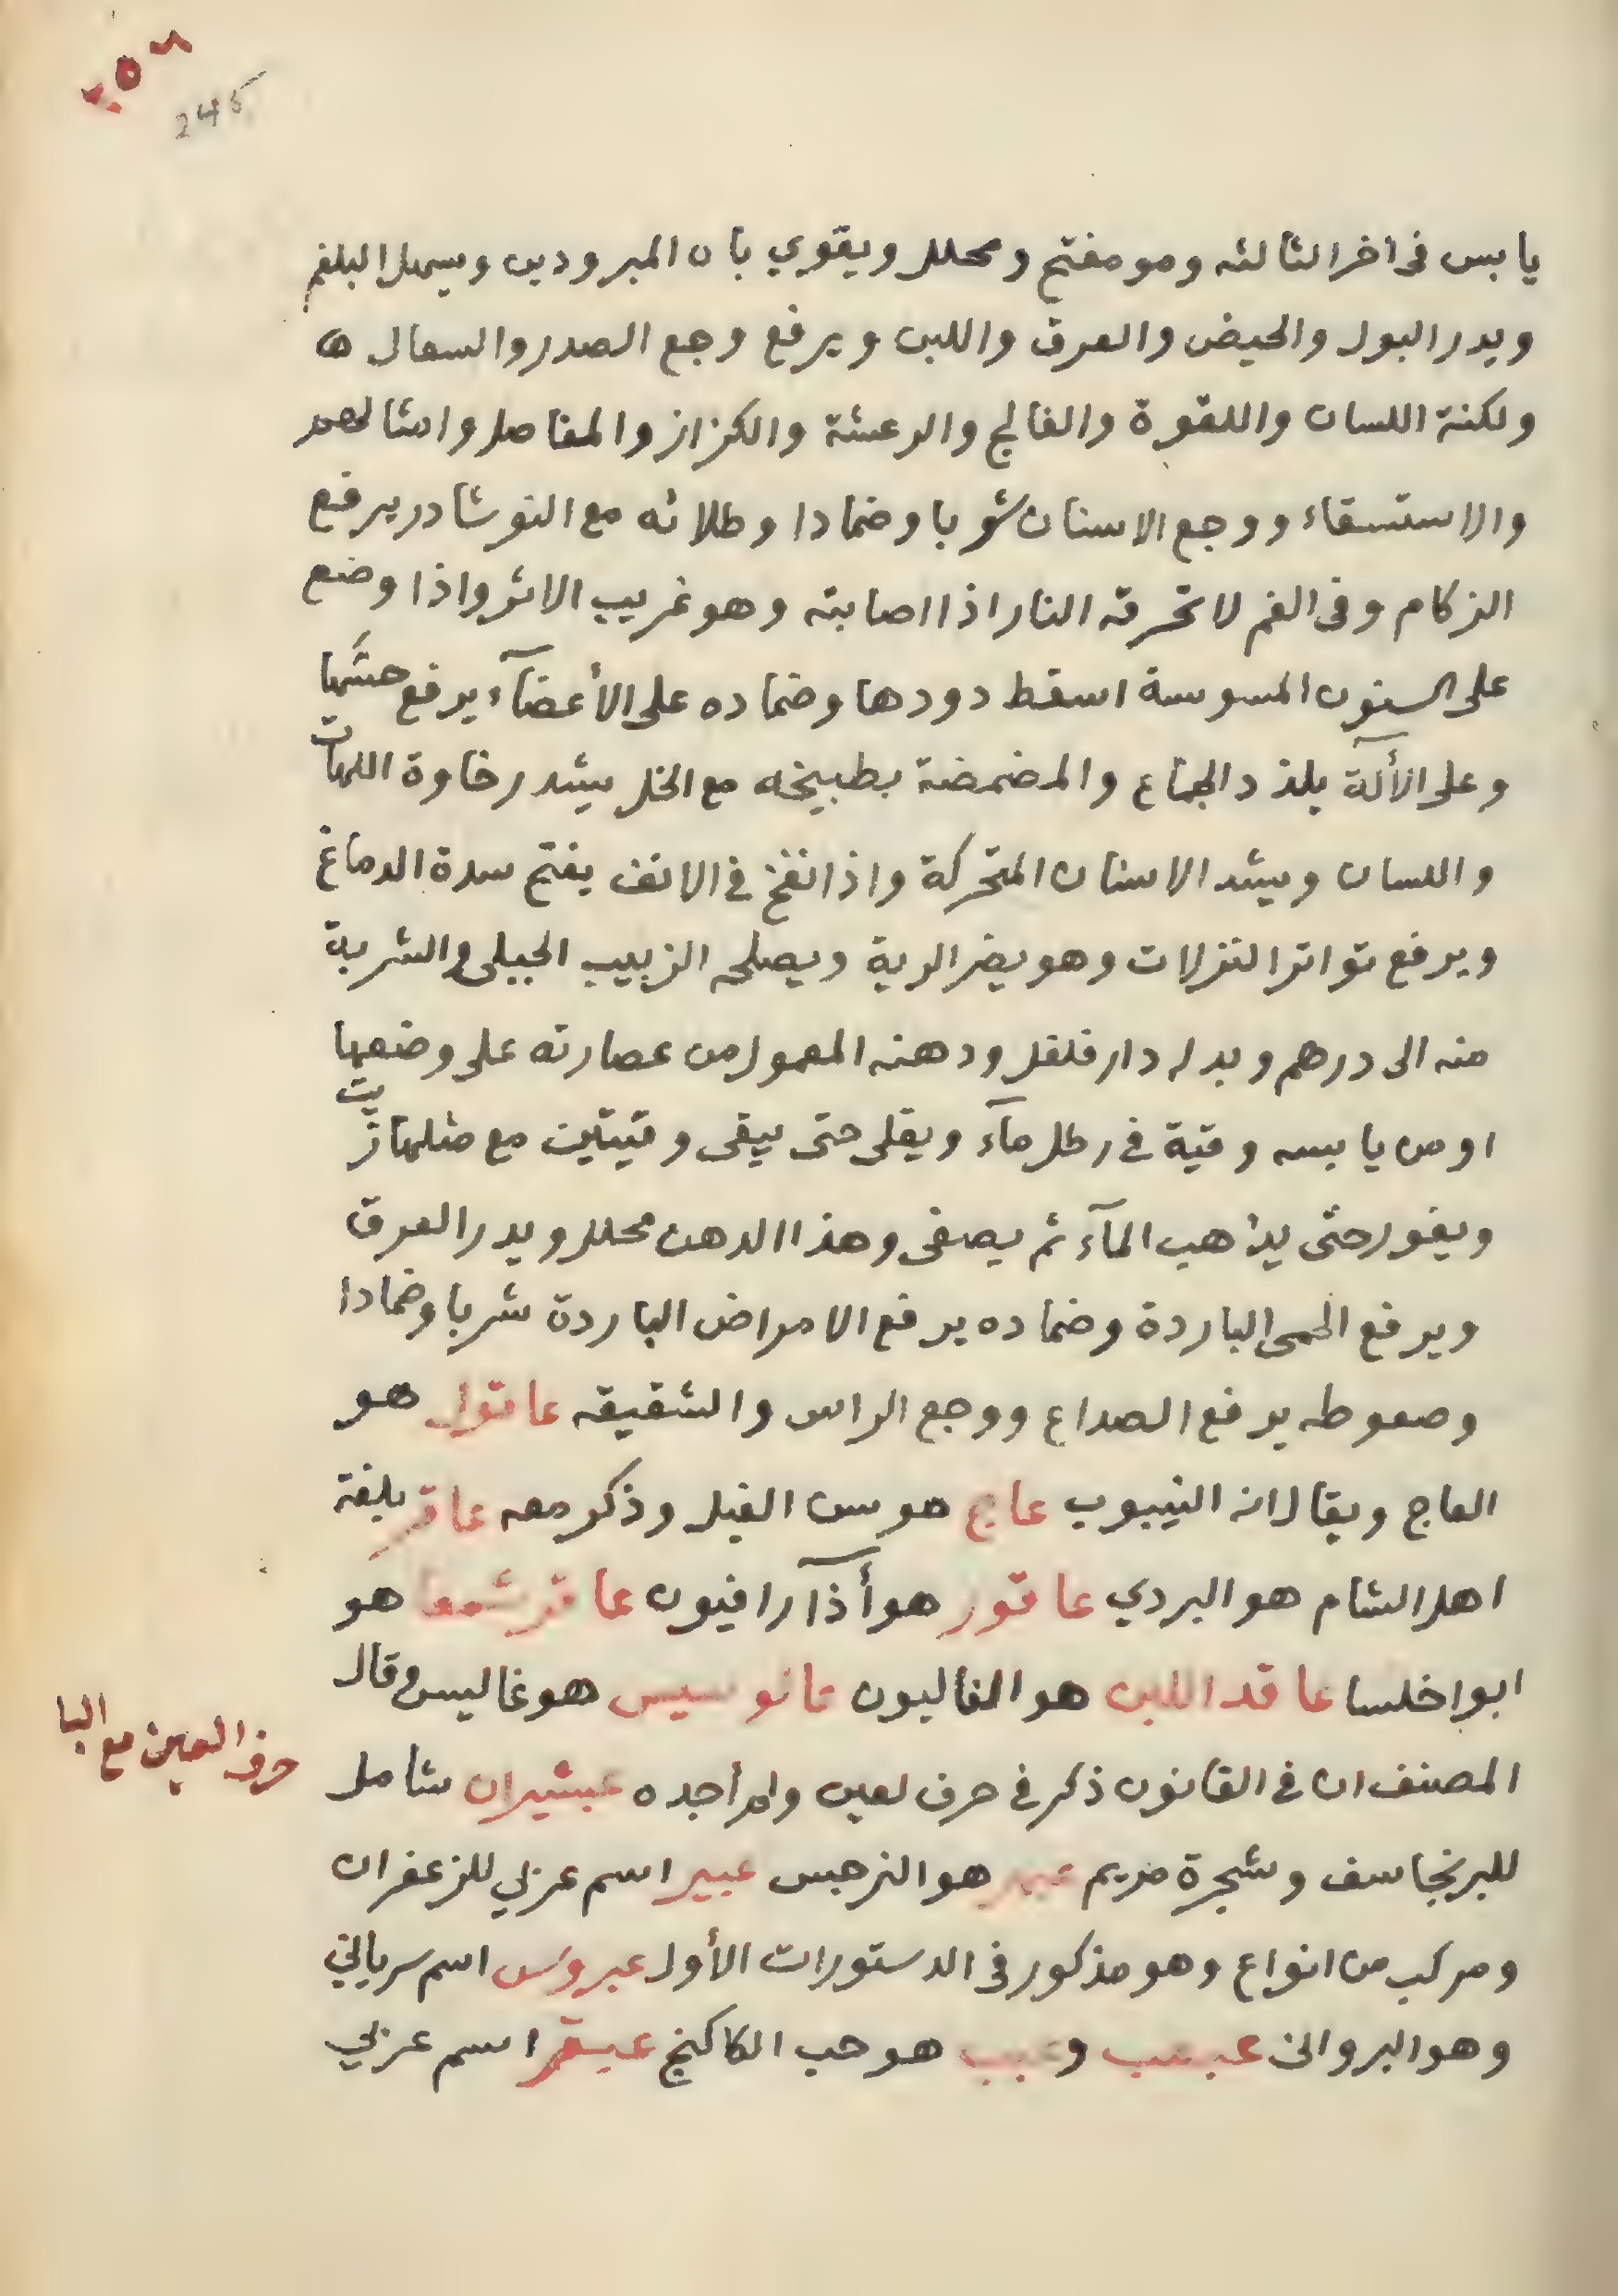 ٢٥٨
245
يابس فى اخر الثالثه ومو مفتح ومحلل ويقوي باه المبرودين ويسهل البلغم
ويدر البول والحيض والعرق واللبن ويرفع وجع الصدر والسعال ه
ولكنة اللسان واللقوة والفالج والرعشة والكزاز والمفاصل وامثالهم
والاستسقاء ووجع الاسنان شربا وضمادا وطلائه مع النوشادر يرفع
الزكام وفى الفم لا تحرقه النار اذا اصابته وهو غريب الاثر واذا وضع
على السنون المسوسة اسقط دودها وضماده على الأعضآء يرفع
وعلى الألآة يلذد الجماع والمضمضة بطبيخه مع الخل يشد رخاوة اللهات
واللسان ويشد الاسنان المتحركة واذا نفخ فى الانف يفتح سدة الدماغ
ويرفع تواتر النزلات وهو يضر الرية ويصلحه الزبيب الجبلى والشربة
منه الى درهم وبدله دار فلفل ودهنه المعمول من عصارته على وضعها
او من يابسه وقية فى رطل مآء ويغلى حتى يبقى وقيتين مع مثلها زيت
ويفور حتى يذهب المآء ثم يصفى وهذا الدهن محلل ويدر العرق
ويرفع الحمى الباردة وضماده يرفع الامراض الباردة شربا وضمادا
وصعوطه يرفع الصداع ووجع الراس والشقيقه عاقول هو
العاج ويقال انه الينبوب عاج هو سن الفيل وذكر معه عاقر بلغة
اهل الشام هو البردي عاقور هو أذآرافيون عاقر شمعا هو
ابو اخلسا عاقد اللبن هو الغاليون عانوسيس هو غاليس وقال
المصنف ان فى القانون ذكر فى حرف لعين ولم أجده عبشيران شامل
للبرنجاسف وشجرة مريم عبهر هو النرجس عبير اسم عربي للزعفران
ومركب من انواع وهو مذكور فى الدستورات الأول عبروس اسم سرياني
وهو البروانى عبعب وعبب هو حب الكاكنج عبقر اسم عربي
حرف العين مع البا